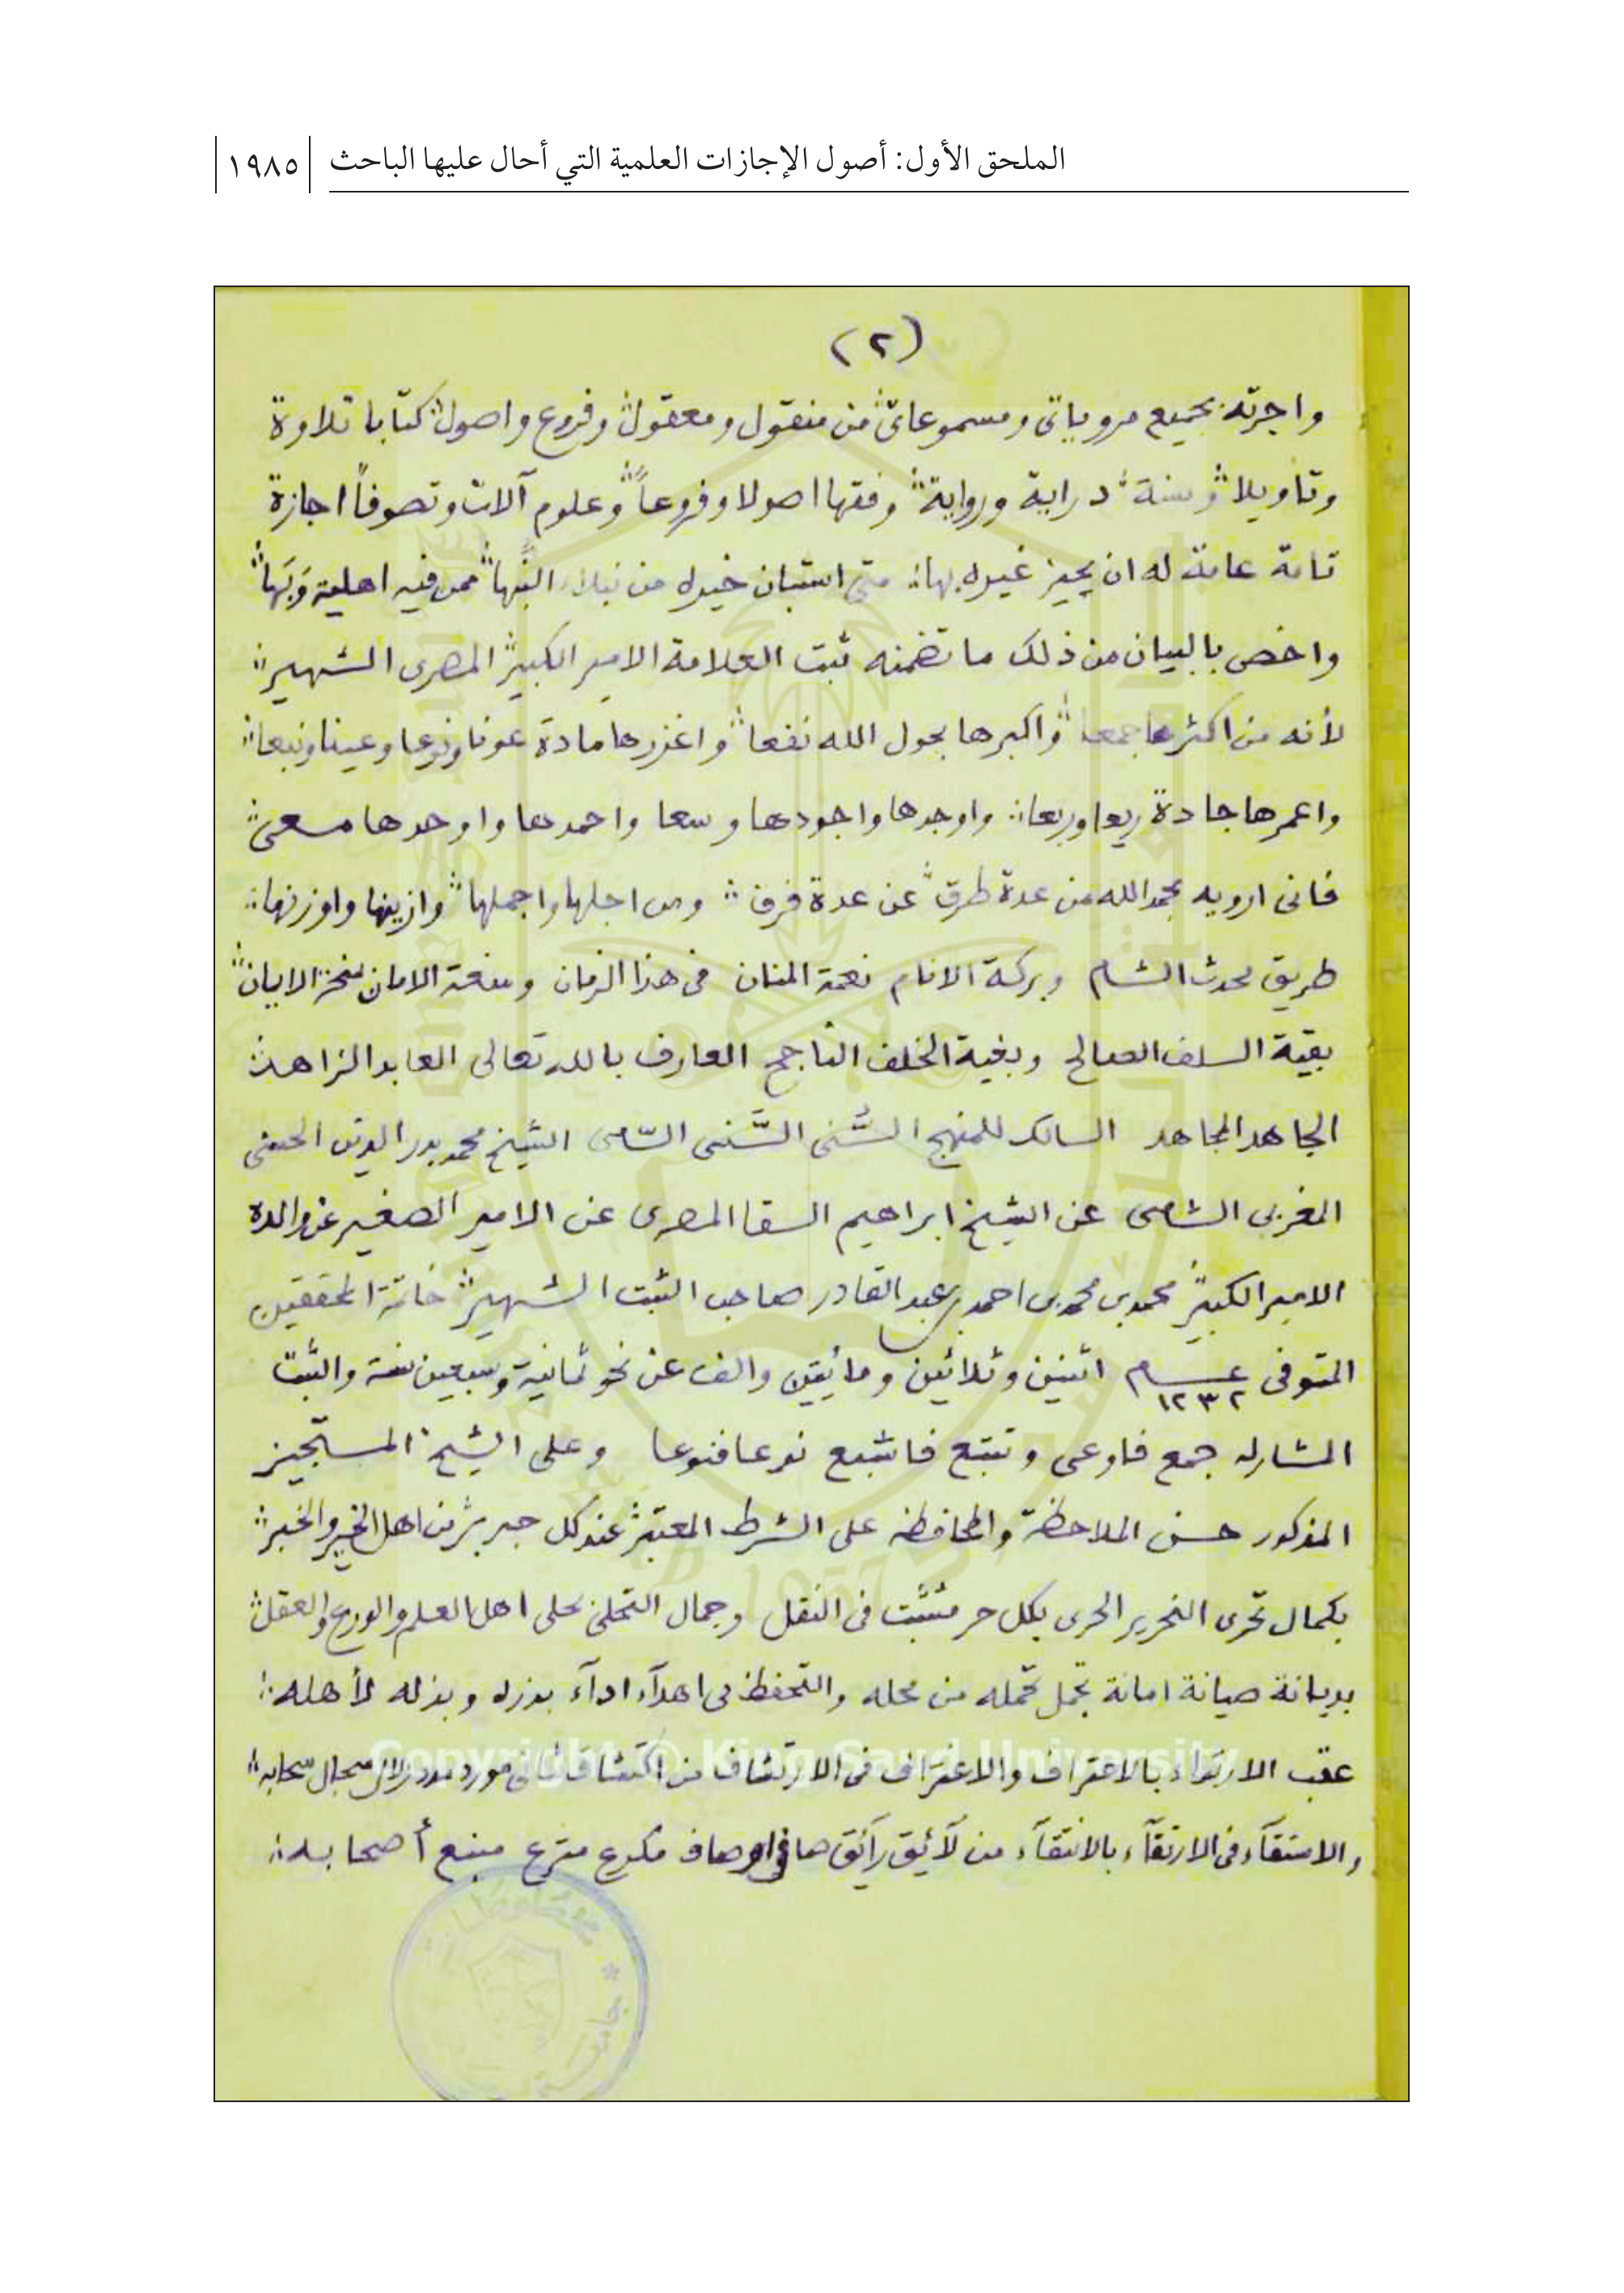 الملحق الأول: أصول الإجازات العلمية التي أحال عليها الباحث
١٩٨٥
(٢)
واجزته بجميع مروياتى ومسموعاتى من منقول ومعقول وفروع واصول كتابا تلاوة
وتأويلا وسنة دراية ورواية وفقها اصولا وفروعاً وعلوم آلات وتصوفاً اجازة
تامة عامة له ان يجيز غيره بها متى استبان خيره من نبلاء النُّبَها ممن فيه اهلية وَبَها
واخص بالبيان من ذلك ما تضمنه ثبت العلامة الامير الكبير المصرى الشهير
لأنه من اكثرها جمعا واكبرها بحول الله نفعا واغزرها مادة عونا ونوعا وعينا ونبعا
واعمرها جادة ريعا وربعا واوجدها واجودها وسعا واحمدها واوحدها مسعى
فانى ارويه بحمد الله من عدة طرق عن عدة فرق ومن اجلها واجملها وازينها واوزنها
طريق محدث الشام وبركة الانام نعمة المنان فى هذا الزمان ومنعة الامان
بقية السلف الصالح وبغية الخلف الناجح العارف بالله تعالى العابد الزاهد
الجاهد المجاهد السالك للمنهج السُّنى السَّنى السّامى الشيخ محمد بدر الدين الحسنى
المغربى الشامى عن الشيخ ابراهيم السقا المصرى عن الامير الصغير عن والده
الامير الكبير محمد بن محمد بن احمد بن عبد القادر صاحب الثبت الشهير خاتمة المحققين
المتوفى عام ١٢٣٢ اثنين وثلاثين ومائتين والف عن نحو ثمانية وسبعين سنة والثبت
المشار له جمع فاوعى وتتبع فاشبع نوعا فنوعا وعلى الشيخ المستجيز
المذكور حسن الملاحظة والمحافظه على الشرط المعتبر عند كل حبر من اهل الخير والخبر
بكمال تحرى التحرير الحرى بكل حر متثبت فى النقل وجمال التحلى بحلى اهل العلم والورع والعقل
بديانة صيانة امانة تحمل تحمله من محله والتحفظ فى اهدآء ادآء بذره وبذله لأهله
عقب الارتواء بالاعتراف والاغتراف فى الارتشاف من مورد سجال سحابه
والاستقآء فى الارتقآء بالانتقآء من لآئق رآئق صافى اوصاف مكرع مترع منبع أصحابه
Copyright © King Saud University
1957